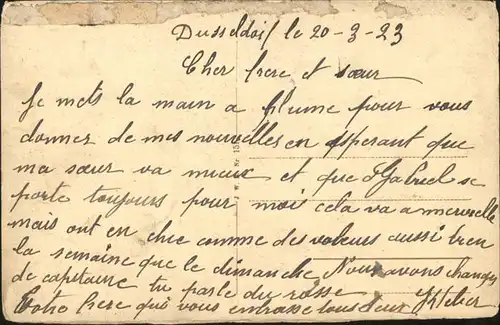 Dusseldorf le 20-3-23
Cher frere et sœur
Je mets la main a plume pour vous
donner de mes nouvelles en esperant que
ma sœur va mieux et que Gabriel se
porte toujours pour moi cela va a merveille
mais ont en chie comme des voleurs aussi bien
la semaine que le dimanche Nous avons changer
de capitaine tu parle du rosse
Votre frere qui vous embrasse tous deux Kleber